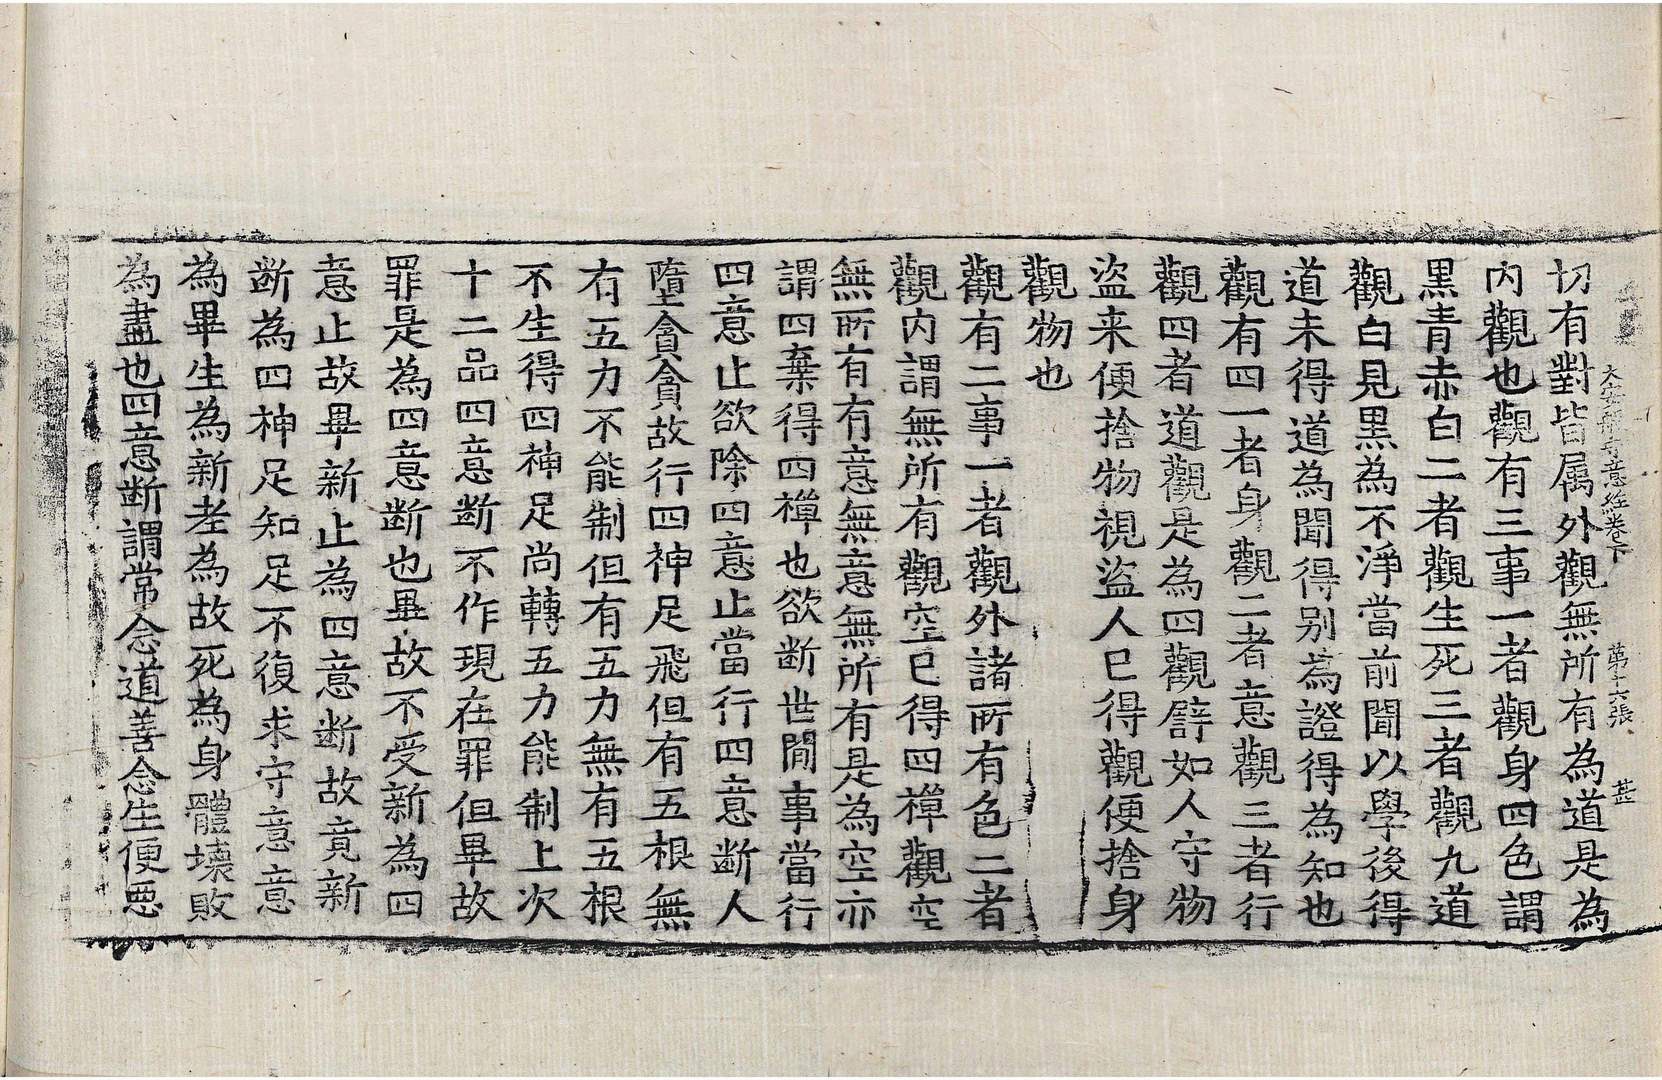 大安般守意經卷下　第十六張　甚
切有對皆属外觀無所有為道是為
内觀也觀有三事一者觀身四色謂
黒青赤白二者觀生死三者觀九道
觀白見黒為不淨當前聞以學後得
道未得道為聞得别為證得為知也
觀有四一者身觀二者意觀三者行
觀四者道觀是為四觀譬如人守物
盜来便捨物視盜人已得觀便捨身
觀物也
觀有二事一者觀外諸所有色二者
觀内謂無所有觀空已得四禪觀空
無所有有意無意無所有是為空亦
謂四棄得四禪也欲断世間事當行
四意止欲除四意止當行四意断人
墮貪貪故行四神足飛但有五根無
有五力不能制但有五力無有五根
不生得四神足尚轉五力能制上次
十二品四意断不作現在罪但畢故
罪是為四意断也畢故不受新為四
意止故畢新止為四意断故竟新
断為四神足知足不復求守意意
為畢生為新老為故死為身體壊敗
為盡也四意断謂常念道善念生便惡